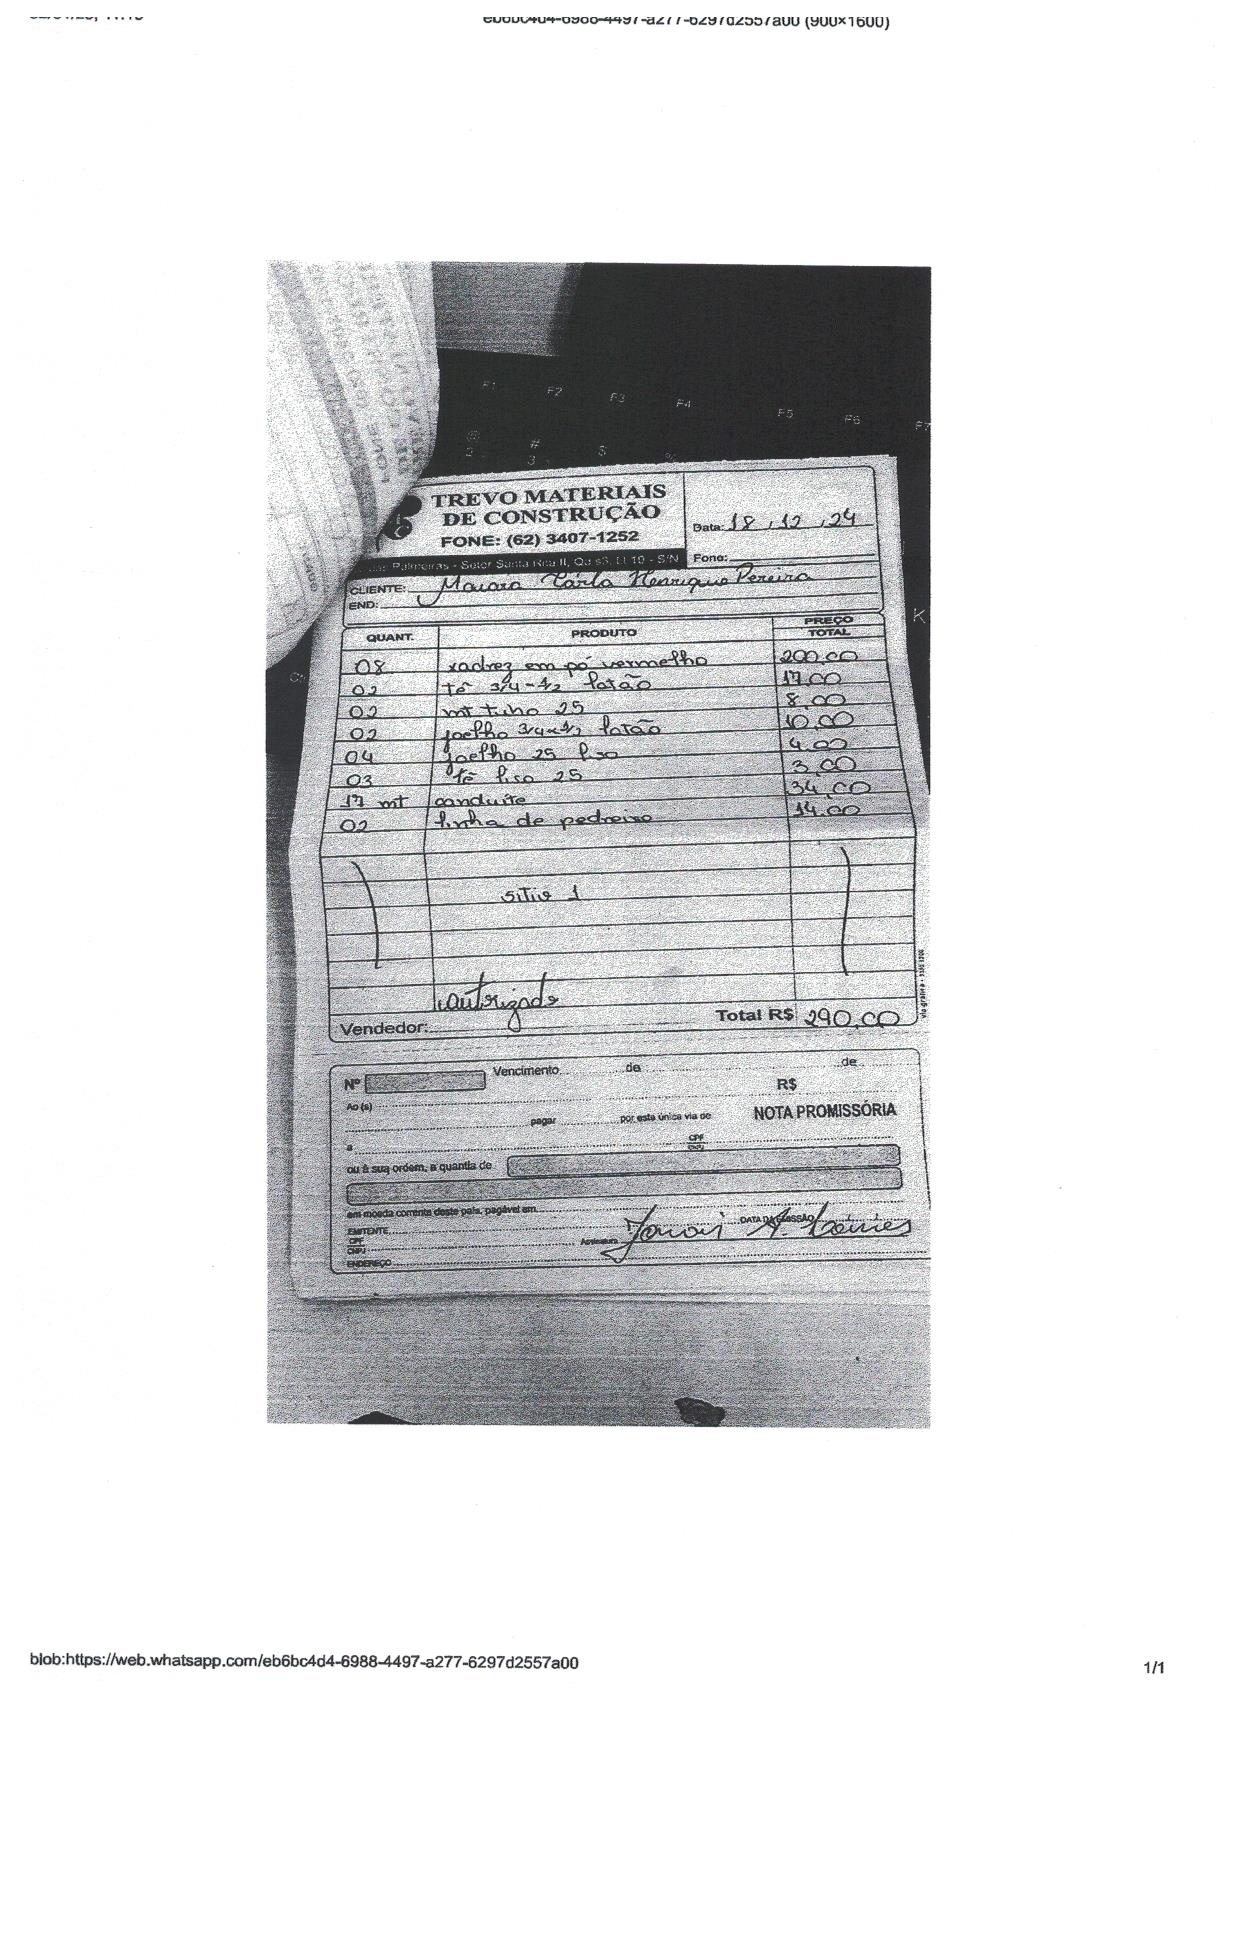 (900×1600)
F1 F2 F3 F4 F5 F6 F7
@ # $ %
2 3
TREVO MATERIAIS
DE CONSTRUÇÃO
FONE: (62) 3407-1252
Palmeiras - Setor Santa Rita II, Qd Lt 10 - S/N
Data: 18, 12, 24
Fone:
CLIENTE: Maiara Carla Henrique Pereira
END:
K
QUANT. PRODUTO PREÇO TOTAL
08 xadrez em pó vermelho 200,00
02 tê 3/4-1/2 latão 17,00
02 mt tubo 25 8,00
02 joelho 3/4x1/2 latão 10,00
04 joelho 25 liso 4,00
03 tê liso 25 3,00
17 mt conduite 34,00
02 linha de pedreiro 14,00
sitio 1
autorizado
Vendedor: Total R$ 290,00
Nº Vencimento de de
R$
Ao(s)
pagar por esta única via de NOTA PROMISSÓRIA
a CPF CNPJ
ou à sua ordem, a quantia de
em moeda corrente deste país, pagável em
EMITENTE DATA DA EMISSÃO
CPF
CNPJ Assinatura
ENDEREÇO
blob:https://web.whatsapp.com/eb6bc4d4-6988-4497-a277-6297d2557a00
1/1